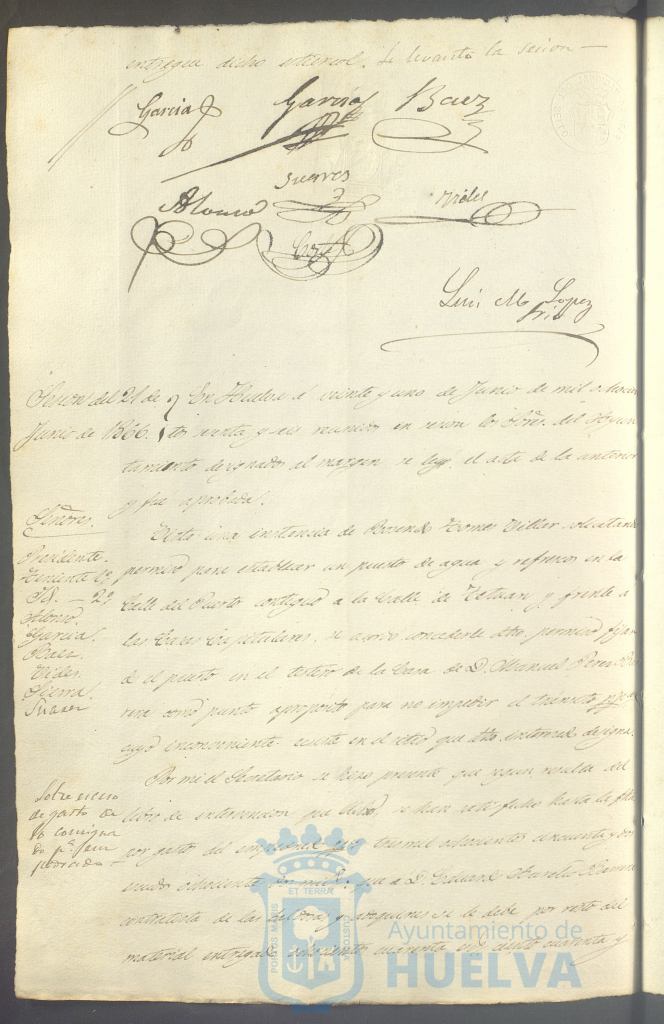 entregue dicho material. Se levantó la sesion
Garcia Garcia Baez
Alonso Suarez Vides
Luis M. Lopez
Srio
Sesion del 21 de
Junio de 1866.
En Huelva á veinte y uno de Junio de mil ochocien
tos sesenta y seis reunidos en sesion los Sres. del Ayun
tamiento designados al margen se leyó el acta de la anterior
y fué aprobada.
Señores.
Presidente.
Teniente 1º
Id. — 2º
Alonso.
Garcia.
Baez.
Vides.
Sierra.
Suarez
Vista una instancia de Rosendo Gomez solicitando
permiso para establecer un puesto de agua y refrescos en la
Calle del Puerto contiguo a la Calle de Tetuan y frente a
las Casas Capitulares, se acordó concederle dho. permiso fijan
do el puesto en el testero de la Casa de D. Manuel Perez
como punto aproposito para no impedir el tránsito
cuyo inconveniente existe en el sitio que dho. interesado designa.
Sobre
de gasto de
lo consigna
do pª
Por mi el Secretario se hizo presente que segun resulta del
libro de intervencion que llevo, se han satisfecho hasta la fha
por gasto del empedrado tresmil ochocientos cincuenta y dos
escudos que a D. Eduardo Aurelio
contratista de las y adoquines se le debe por resto del
material entregado ochocientos cuarenta ciento cuarenta y
PORTUS MARIS
ET TERRAE
CUSTODIA
Ayuntamiento de
HUELVA